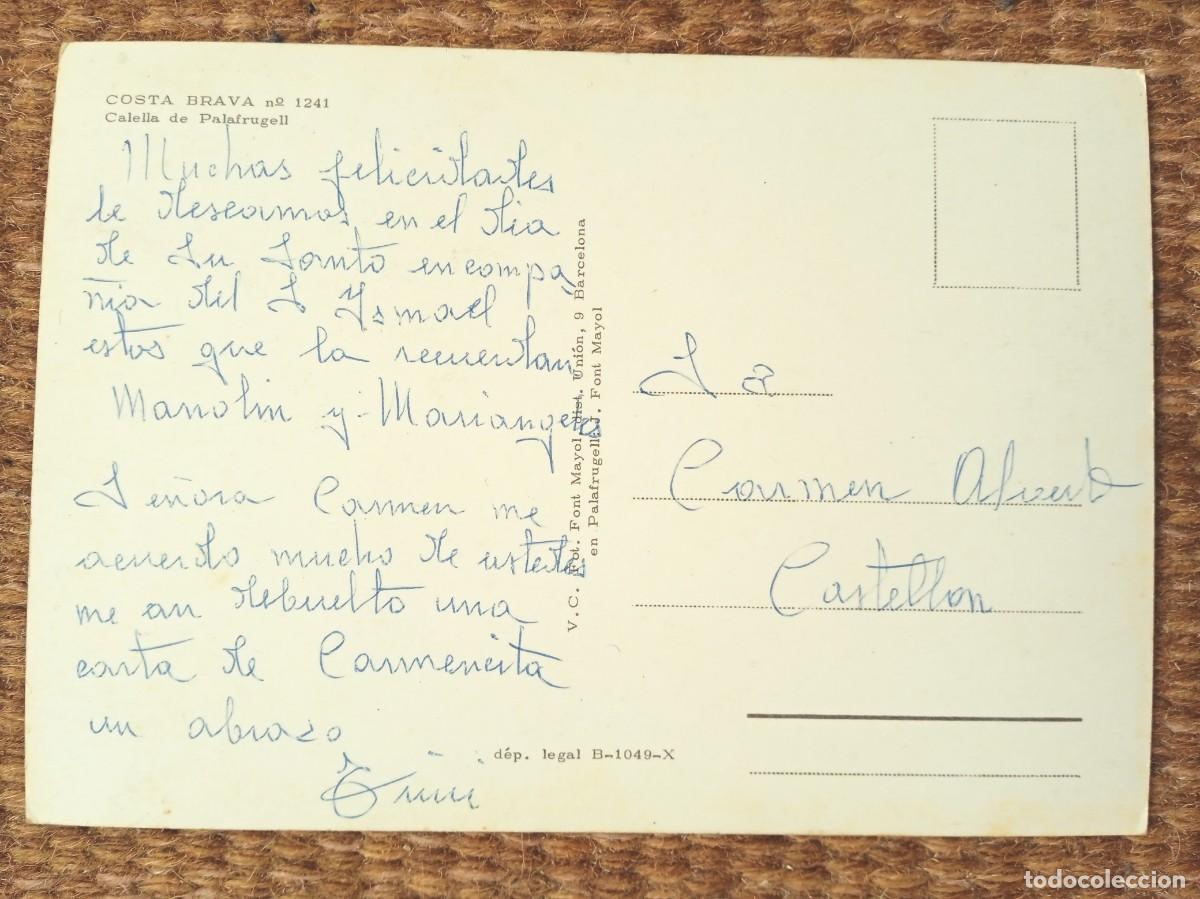 COSTA BRAVA nº 1241
Calella de Palafrugell
Muchas felicidades
le deseamos en el dia
de Su Santo en compa
ñia del S Ysmael
estos que la recuerdan
Manolin y Mariangela
Señora Carmen me
acuerdo mucho de ustedes
me an debuelto una
carta de Carmencita
un abrazo
V. C. Fot. Font Mayol dist. Unión, 9 Barcelona
en Palafrugell J. Font Mayol
dép. legal B-1049-X
S a
Carmen
Castellon
todocoleccion